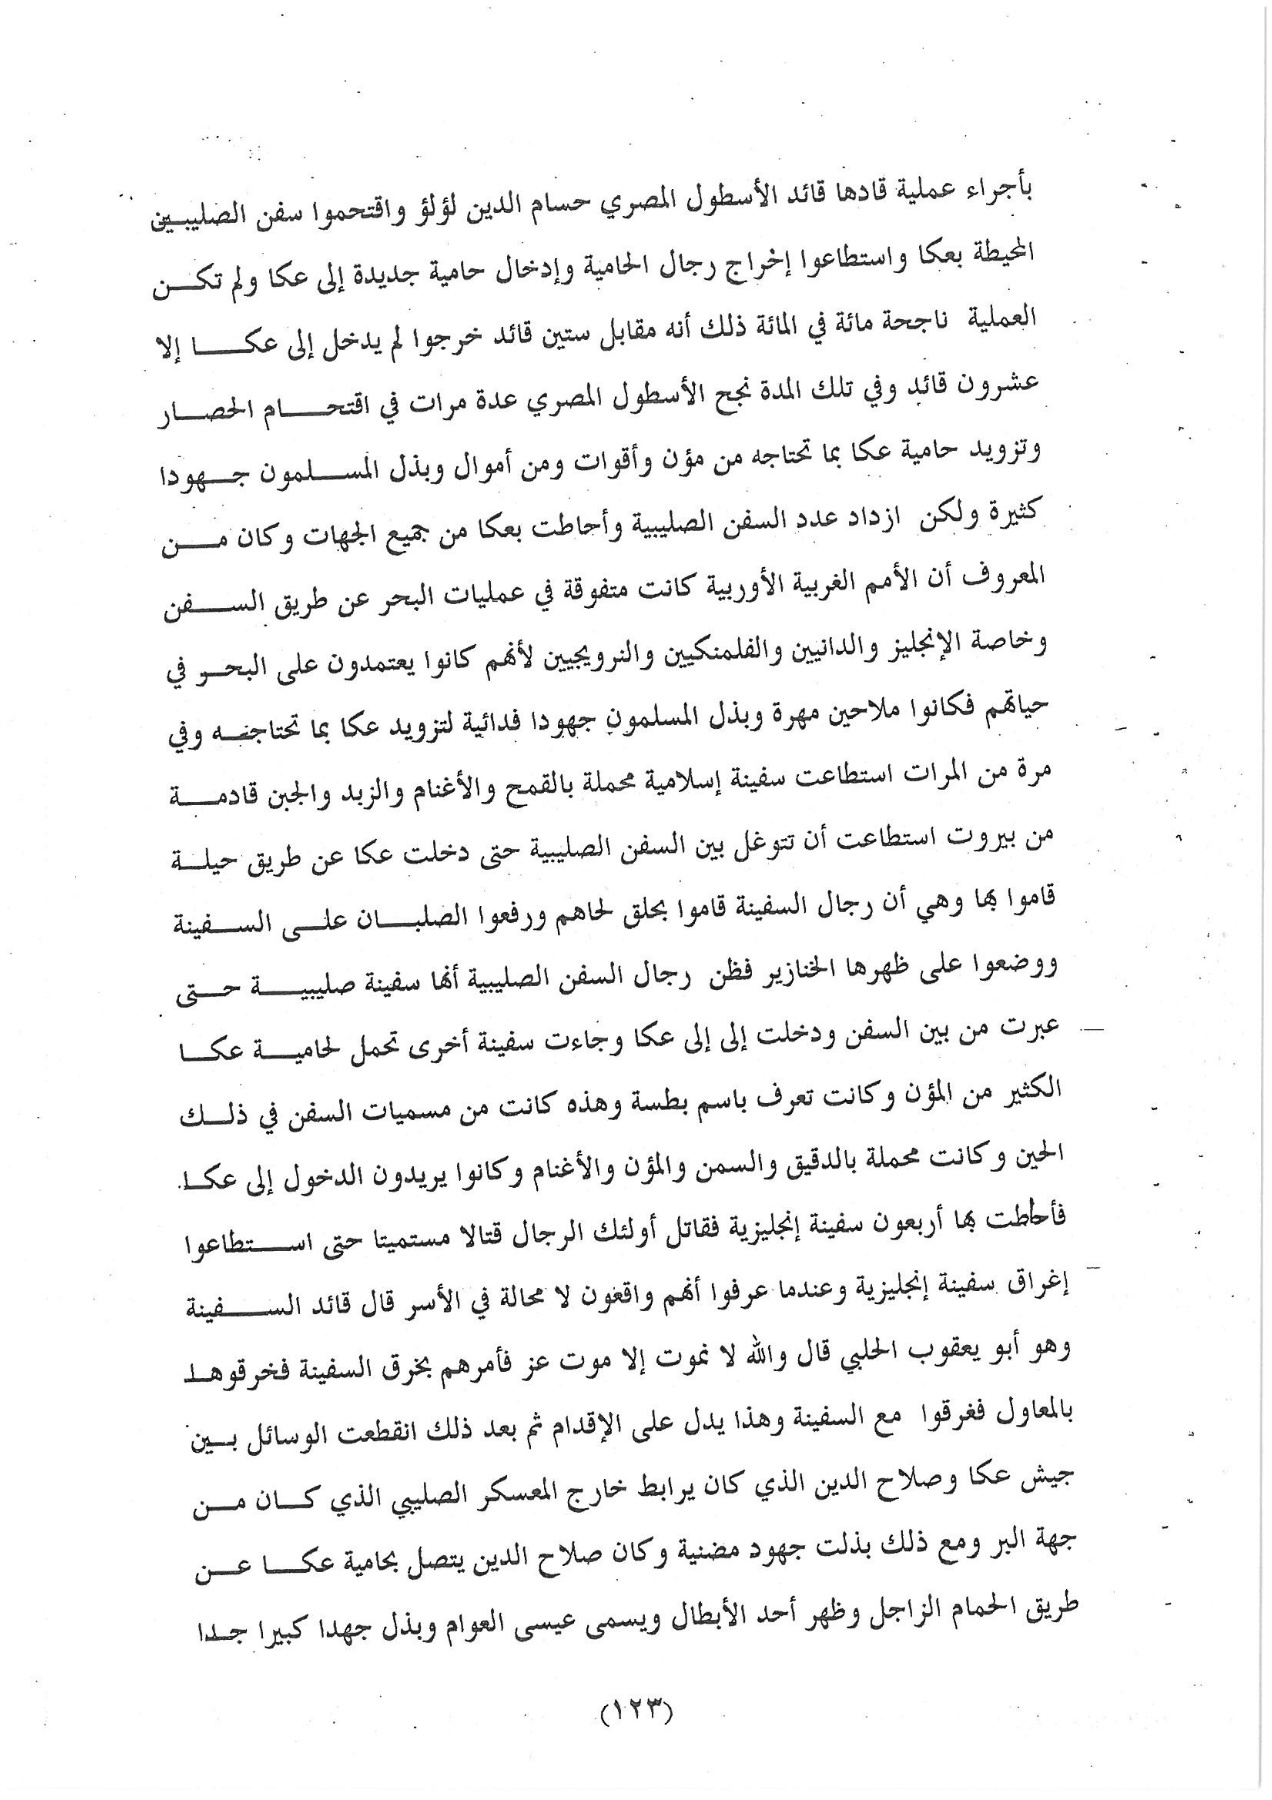 بأجراء عملية قادها قائد الأسطول المصري حسام الدين لؤلؤ واقتحموا سفن الصليبين
المحيطة بعكا واستطاعوا إخراج رجال الحامية وإدخال حامية جديدة إلى عكا ولم تكن
العملية ناجحة مائة في المائة ذلك أنه مقابل ستين قائد خرجوا لم يدخل إلى عكا إلا
عشرون قائد وفي تلك المدة نجح الأسطول المصري عدة مرات في اقتحام الحصار
وتزويد حامية عكا بما تحتاجه من مؤن وأقوات ومن أموال وبذل المسلمون جهودا
كثيرة ولكن ازداد عدد السفن الصليبية وأحاطت بعكا من جميع الجهات وكان من
المعروف أن الأمم الغربية الأوربية كانت متفوقة في عمليات البحر عن طريق السفن
وخاصة الإنجليز والدانيين والفلمنكيين والنرويجيين لأنهم كانوا يعتمدون على البحر في
حياتهم فكانوا ملاحين مهرة وبذل المسلمون جهودا فدائية لتزويد عكا بما تحتاجه وفي
مرة من المرات استطاعت سفينة إسلامية محملة بالقمح والأغنام والزبد والجبن قادمة
من بيروت استطاعت أن تتوغل بين السفن الصليبية حتى دخلت عكا عن طريق حيلة
قاموا بها وهي أن رجال السفينة قاموا بحلق لحاهم ورفعوا الصلبان على السفينة
ووضعوا على ظهرها الخنازير فظن رجال السفن الصليبية أنها سفينة صليبية حتى
عبرت من بين السفن ودخلت إلى إلى عكا وجاءت سفينة أخرى تحمل لحامية عكا
الكثير من المؤن وكانت تعرف باسم بطسة وهذه كانت من مسميات السفن في ذلك
الحين وكانت محملة بالدقيق والسمن والمؤن والأغنام وكانوا يريدون الدخول إلى عكا.
فأحاطت بها أربعون سفينة إنجليزية فقاتل أولئك الرجال قتالا مستميتا حتى استطاعوا
إغراق سفينة إنجليزية وعندما عرفوا أنهم واقعون لا محالة في الأسر قال قائد السفينة
وهو أبو يعقوب الحلبي قال والله لا نموت إلا موت عز فأمرهم بخرق السفينة فخرقوها
بالمعاول فغرقوا مع السفينة وهذا يدل على الإقدام ثم بعد ذلك انقطعت الوسائل بين
جيش عكا وصلاح الدين الذي كان يرابط خارج المعسكر الصليبي الذي كان من
جهة البر ومع ذلك بذلت جهود مضنية وكان صلاح الدين يتصل بحامية عكا عن
طريق الحمام الزاجل وظهر أحد الأبطال ويسمى عيسى العوام وبذل جهدا كبيرا جدا
(١٢٣)